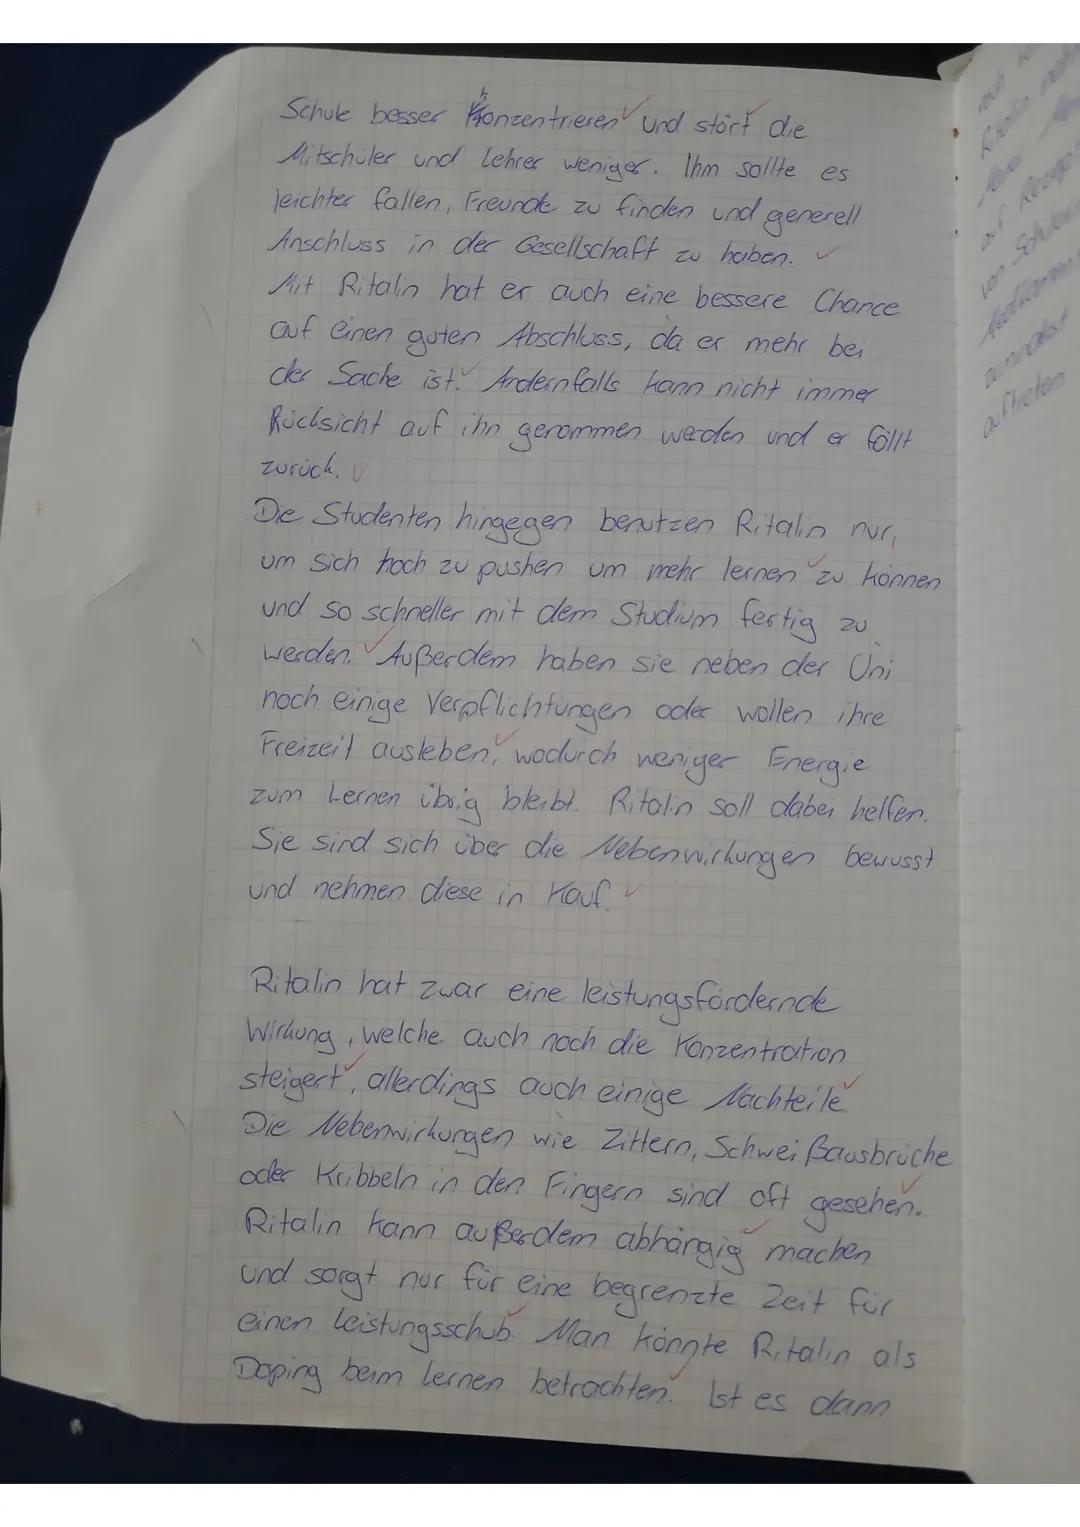 Schule besser konzentrieren und stört die
Mitschüler und Lehrer weniger. Ihm sollte es
leichter fallen, Freunde zu finden und generell
Anschluss in der Gesellschaft zu haben.
Mit Ritalin hat er auch eine bessere Chance
auf einen guten Abschluss, da er mehr bei
der Sache ist. Andernfalls kann nicht immer
Rücksicht auf ihn genommen werden und er fällt
zurück.
Die Studenten hingegen benutzen Ritalin nur,
um sich hoch zu pushen um mehr lernen zu können
und so schneller mit dem Studium fertig zu
werden. Außerdem haben sie neben der Uni
noch einige Verpflichtungen oder wollen ihre
Freizeit ausleben, wodurch weniger Energie
zum Lernen übrig bleibt. Ritalin soll dabei helfen.
Sie sind sich über die Nebenwirkungen bewusst
und nehmen diese in Kauf.
Ritalin hat zwar eine leistungsfördernde
Wirkung, welche auch noch die Konzentration
steigert, allerdings auch einige Nachteile.
Die Nebenwirkungen wie Zittern, Schweißausbrüche
oder Kribbeln in den Fingern sind oft gesehen.
Ritalin kann außerdem abhängig machen
und sorgt nur für eine begrenzte Zeit für
einen Leistungsschub. Man könnte Ritalin als
Doping beim lernen betrachten. Ist es dann
noch
auf
von
zumindest
auftreten